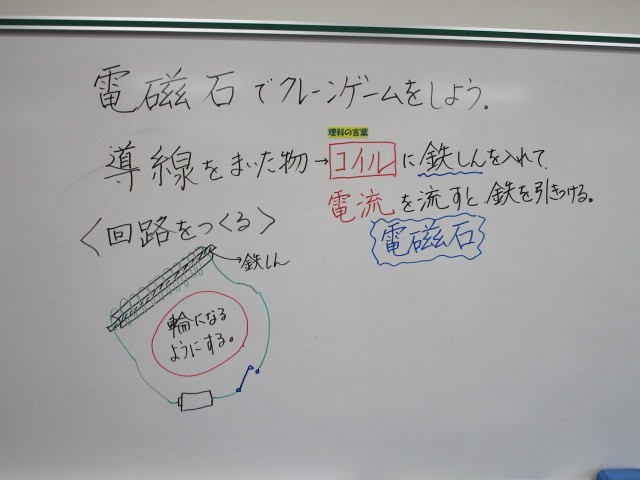 電磁石でクレーンゲームをしよう。
理科の言葉
導線をまいた物→コイルに鉄しんを入れて、
電流を流すと鉄を引きつける。
電磁石
〈回路をつくる〉
→鉄しん
輪になる
ようにする。